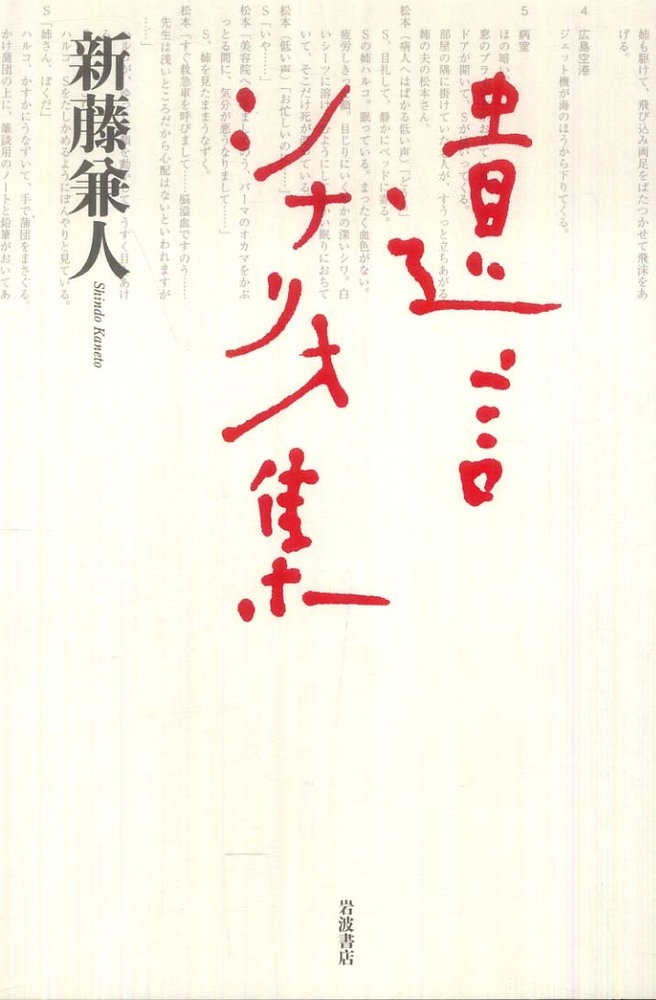 姉も駆けて、飛び込み両足をばたつかせて飛沫をあ
げる。
4 広島空港
ジェット機が海のほうから下りてくる。
5 病室
ほの暗い
窓のブラ
ドアが開いて、Sが
部屋の隅に掛けていた
人が、すうっと立ちあがる
姉の夫の松本さん。
松本(病人へはばかる低い声)
S、目礼して、静かにベッドに寄る。
Sの姉ハルコ。眠っている。まったく血色がない。
疲労しきっ
顔。目じりにいく
かの深いシワ。白
いシーツに溶け
ように
い眠りにおちて
いて、そこだけ死が
ている
松本(低い声)「お忙しいの
」
S「いや……」
松本「美容院へ
ま
のう、パーマのオカマをかぶ
っとる間に、気分が悪うなりまして……」
S、姉を見たままうなずく。
松本「すぐ救急車を呼びまして……脳溢血ですのう……
先生は浅いところだから心配はないといわれますが
……」
うすく目
あけ
る。
ハルコ、Sをたしかめるようにぼんやりと見ている。
S「姉さん、ぼくだ」
ハルコ、かすかにうなずいて、手で蒲団をまさぐる。
かけ蒲団の上に、筆談用のノートと鉛筆がおいてあ
遺言
シナリオ集
新藤兼人
Shindo Kaneto
岩波書店